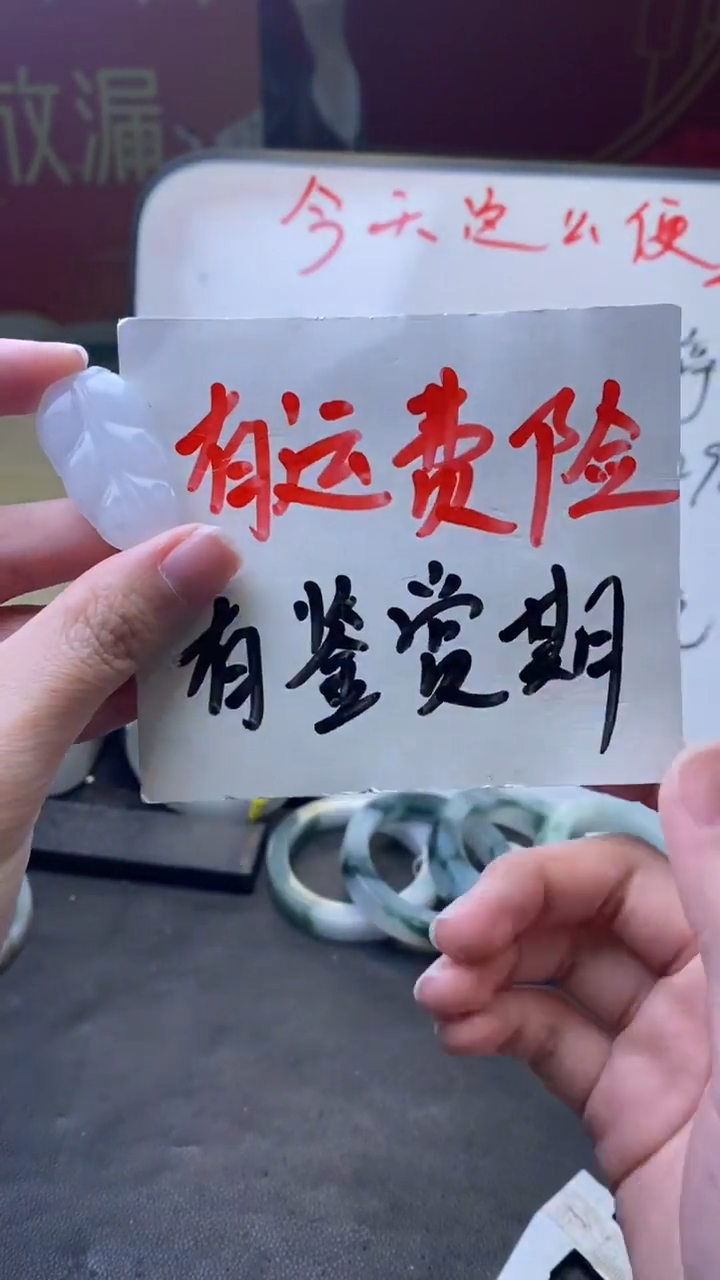 放漏
今天这么便
有运费险
有鉴赏期